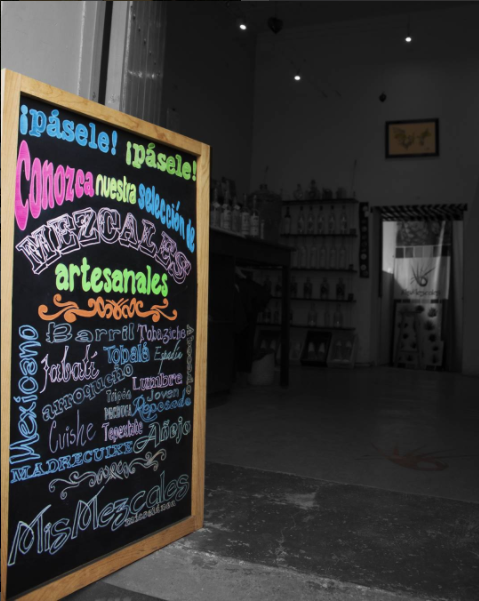 ¡pásele! ¡pásele!
Conozca nuestra selección de
MEZCALES
artesanales
Barril Tobaziche
Mexicano
Jabalí Tobalá Espadín
arroqueño Lumbre
Joven
Cuishe Tepextate Reposado
MADRECUIXE Añejo
MisMezcales